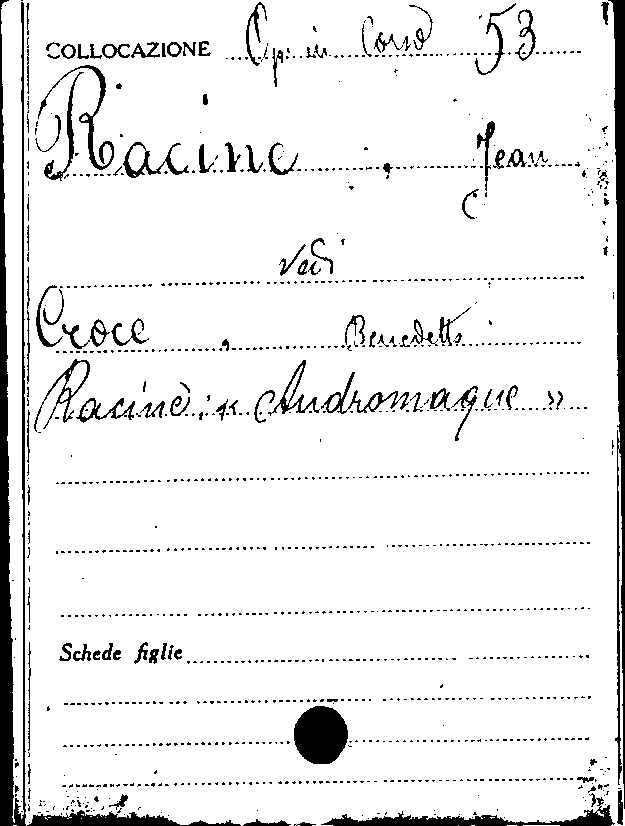 COLLOCAZIONE Op. in Corso 53
Racine, Jean
Vedi
Croce, Benedetto
Racine: « Andromaque »
Schede figlie